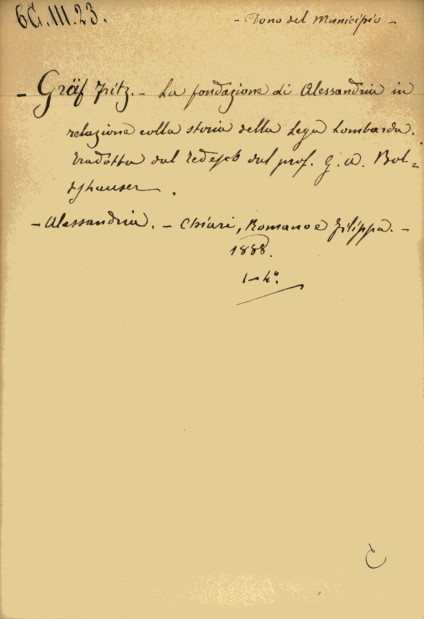 6G.III.23.
- Dono del Municipio -
- Gräf Fritz. - La fondazione di Alessandria in
relazione colla storia della Lega Lombarda.
Tradotta dal Tedesco dal prof. G. A. Bol=
zhauser.
- Alessandria. - Chiari, Romano e Filippa. -
1888.
1-4°.